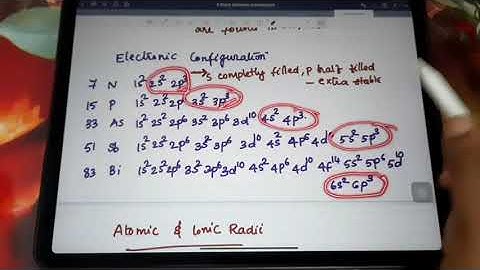 are found in
Electronic Configuration
7 N 1s² 2s² 2p³ → s completly filled, p half filled
– extra stable
15 P 1s² 2s² 2p⁶ 3s² 3p³
33 As 1s² 2s² 2p⁶ 3s² 3p⁶ 3d¹⁰ 4s² 4p³.
51 Sb 1s² 2s² 2p⁶ 3s² 3p⁶ 3d¹⁰ 4s² 4p⁶ 4d¹⁰ 5s² 5p³
83 Bi 1s² 2s² 2p⁶ 3s² 3p⁶ 3d¹⁰ 4s² 4p⁶ 4d¹⁰ 4f¹⁴ 5s² 5p⁶ 5d¹⁰
6s² 6p³
Atomic & Ionic Radii